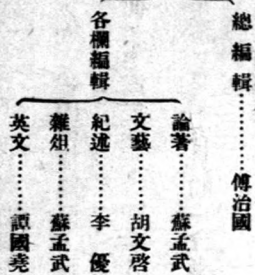 總編輯…………傅治國
各欄編輯
論著…………蘇孟武
文藝…………胡文啓
紀述…………李優
雜俎…………蘇孟武
英文…………譚國堯